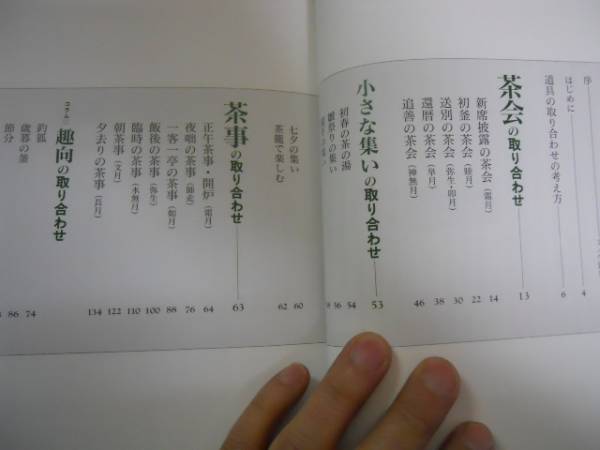 序 4
はじめに
道具の取り合わせの考え方 6
茶会の取り合わせ 13
新席披露の茶会（霜月） 14
初釜の茶会（睦月） 22
送別の茶会（弥生・卯月） 30
還暦の茶会（皐月） 38
追善の茶会（神無月） 46
小さな集いの取り合わせ 53
初春の茶の湯 54
雛祭りの集い 56
七夕の集い 60
茶籠で楽しむ 62
茶事の取り合わせ 63
正午茶事・開炉（霜月） 64
夜咄の茶事（師走） 76
一客一亭の茶事（如月） 88
飯後の茶事（弥生） 100
臨時の茶事（水無月） 110
朝茶事（文月） 122
夕去りの茶事（長月） 134
コラム 趣向の取り合わせ
釣狐 74
歳暮の釜 86
節分